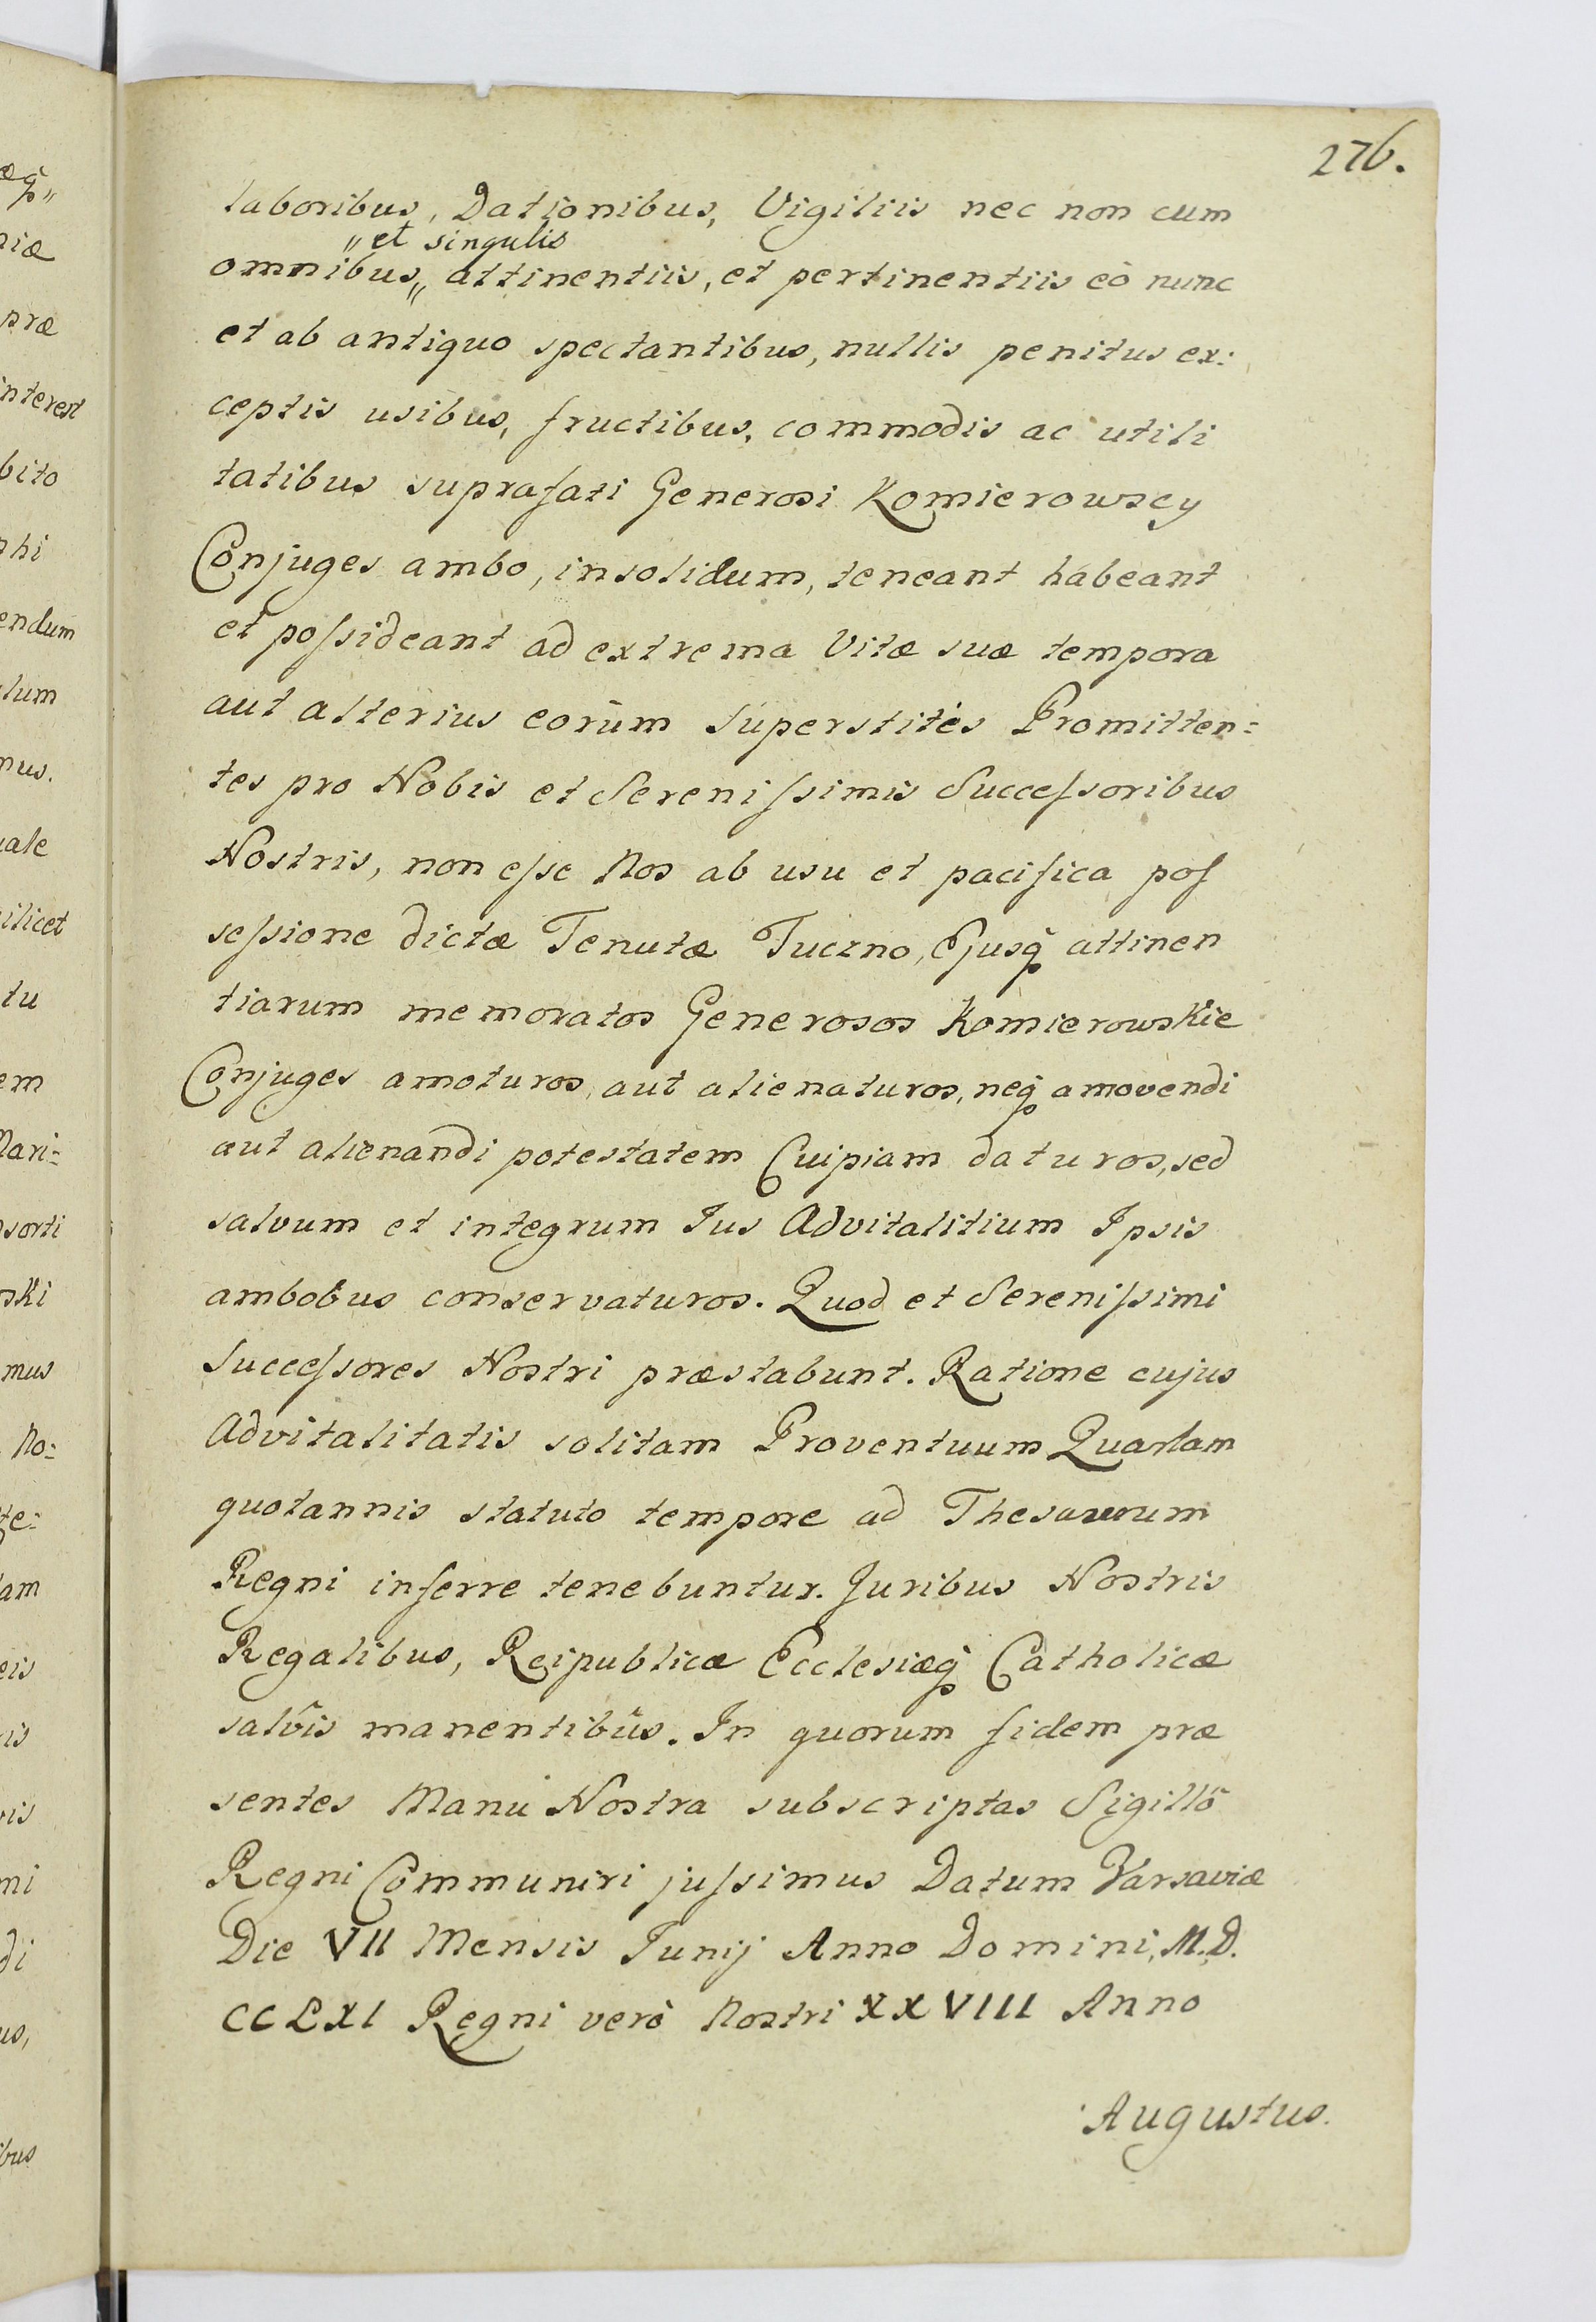 276.
laboribus, Dationibus, Vigiliis nec non cum
„et singulis
omnibus„ attinentiis, et pertinentiis eò nunc
et ab antiquo spectantibus, nullis penitus ex:
ceptis usibus, fructibus, commodis ac utili
tatibus suprafati Generosi Komierowscy
Conjuges ambo, insolidum, teneant habeant
et poſsideant ad extrema Vitæ suæ tempora
aut alterius eorum superstites Promitten=
tes pro Nobis et Sereniſsimis Succeſsoribus
Nostris, non eſse Nos ab usu et pacifica poſ
seſsione dictæ Tenutæ Tuczno, Ejusq̃ attinen
tiarum memoratos Generosos Komierowskie
Conjuges amoturos, aut alienaturos, neq̃ amovendi
aut alienandi potestatem Cuipiam daturos, sed
salvum et integrum Jus Advitalitium Ipsis
ambobus conservaturos. Quod et Sereniſsimi
Succeſsores Nostri præstabunt. Ratione cujus
Advitalitatis solitam Proventuum Quartam
quotannis statuto tempore ad Thesaurum
Regni inferre tenebuntur. Juribus Nostris
Regalibus, Reipublicæ Ecclesiæq̃ Catholicæ
salvis manentibus. In quorum fidem præ
sentes Manu Nostra subscriptas Sigillô
Regni Communiri juſsimus Datum Varsaviæ
Die VII Mensis Junij Anno Domini, M.D.
CCLXI Regni verò Nostri XXVIII Anno
Augustus.